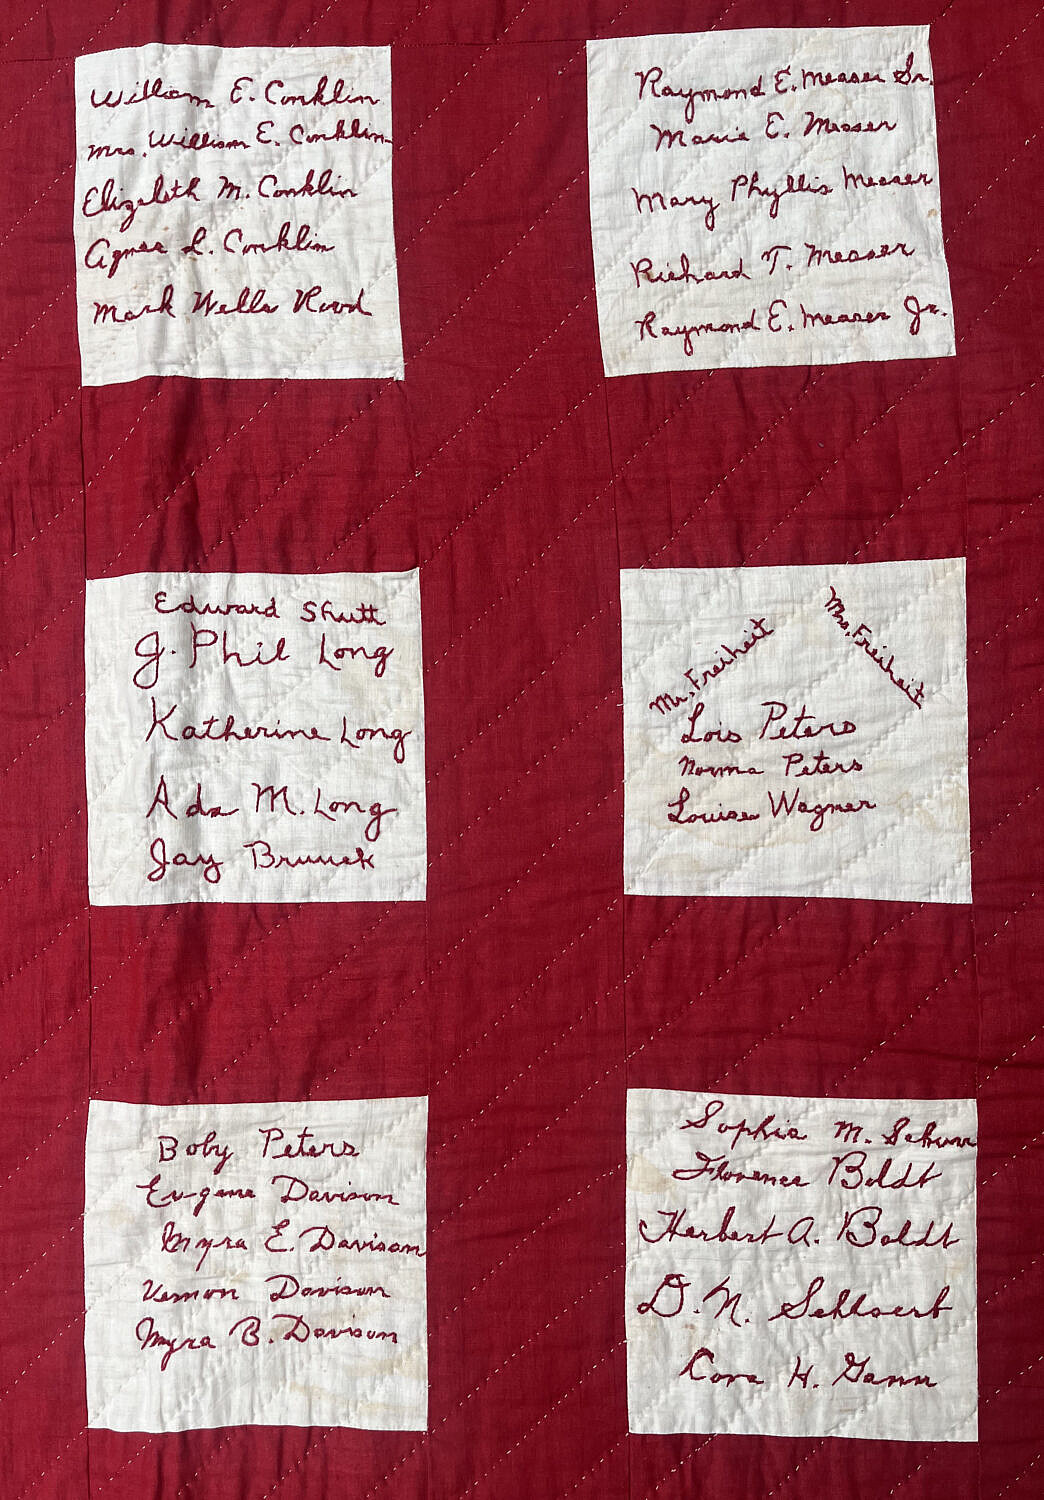 William E. Conklin
Mrs. William E. Conklin
Elizabeth M. Conklin
Agnes L. Conklin
Mark Wells Rood
Raymond E. Measer Sr.
Marie E. Measer
Mary Phyllis Measer
Richard T. Measer
Raymond E. Measer Jr.
Edward Shutt
J. Phil Long
Katherine Long
Ada M. Long
Jay Brunck
Mr. Freiheit
Mrs. Freiheit
Lois Peters
Norma Peters
Louise Wagner
Boby Peters
Eugene Davison
Myra E. Davison
Vernon Davison
Myra B. Davison
Sophia M. Schurr
Florence Boldt
Herbert A. Boldt
D. N.
Cora H. Gann